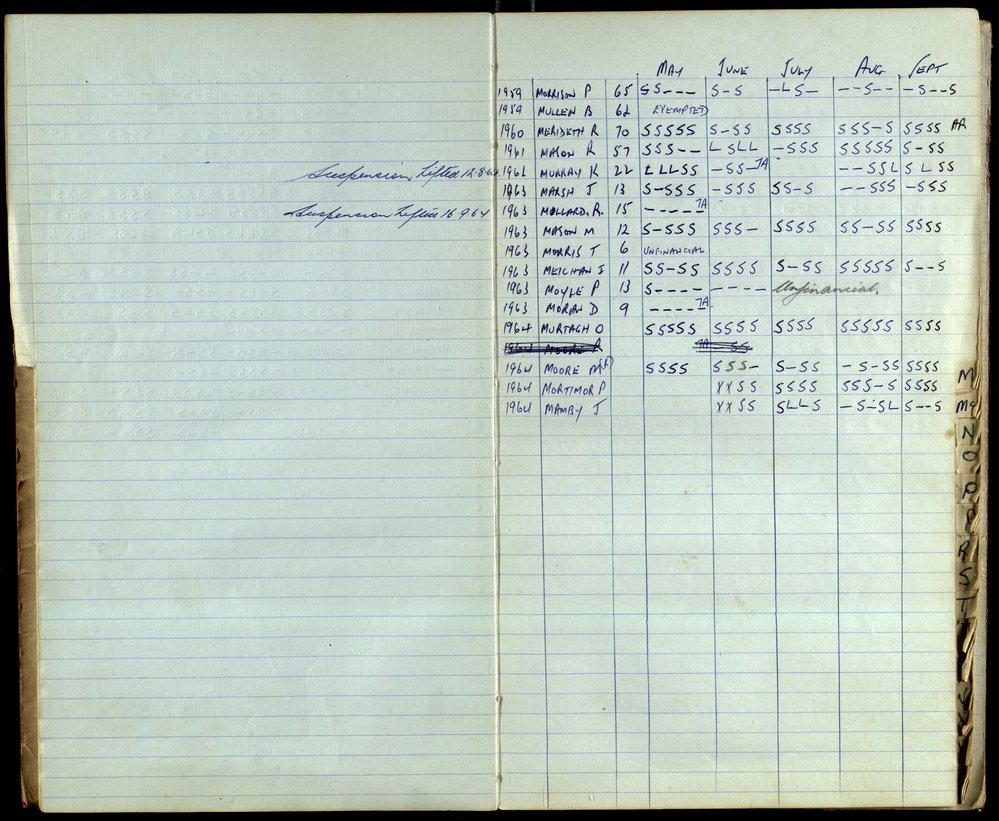 MAY JUNE JULY AUG SEPT
1959 MORRISON P 65 SS--- S-S -LS- --S-- -S--S
1959 MULLEN B 62 EXEMPTED
1960 MERIDETH R 70 SSSSS S-SS SSSS SSS-S SSSS AR
1961 MASON R 57 SSS-- LSLL -SSS SSSSS S-SS
Suspension Lifted 12-8-64 1962 MURRAY K 22 LLLSS -SS- TA --SSL SLSS
1963 MARSH J 13 S-SSS -SSS SS-S --SSS -SSS
Suspension Lifted 16 9 64 1963 MOLLARD. R. 15 ----- TA
1963 MASON M 12 S-SSS SSS- SSSS SS-SS SSSS
1963 MORRIS T 6 UNFINANCIAL
1963 MEIGHAN J 11 SS-SS SSSS S-SS SSSSS S--S
1963 MOYLE P 13 S---- ---- Unfinancial.
1963 MORAN D 9 ----- TA
1964 MURTAGH O SSSSS SSSS SSSS SSSSS SSSS
1964 MOORE R TA SS
1964 MOORE M SSSS SSS- S-SS -S-SS SSSS
1964 MORTIMOR P XXSS SSSS SSS-S SSSS
1964 MAMBY J XXSS SLLS -S-SL S--S
M
Mc
N
O
P
R
S
T